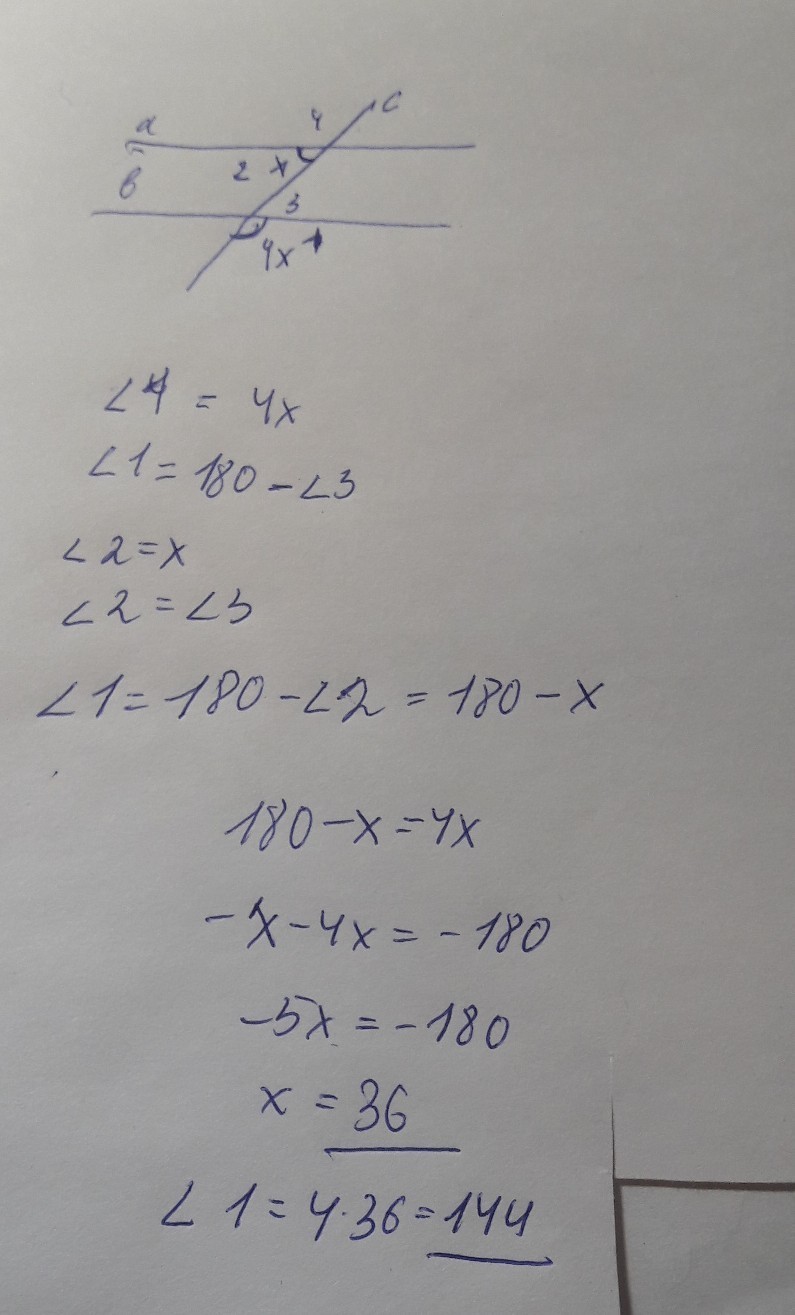 c
4
a
2 x
в
3
4x 1
∠4 = 4x
∠1 = 180 - ∠3
∠2 = x
∠2 = ∠3
∠1 = 180 - ∠2 = 180 - x
180 - x = 4x
-x - 4x = -180
-5x = -180
x = 36
∠1 = 4·36 = 144